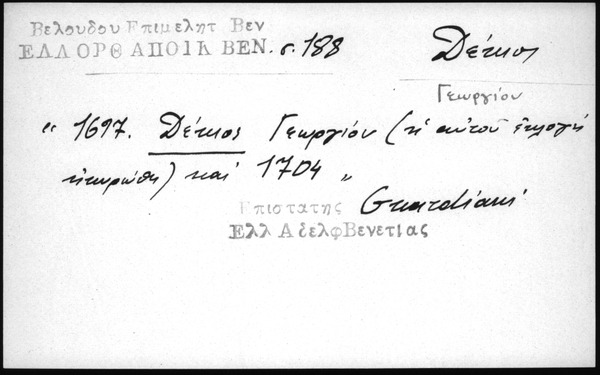 Βελουδου Επιμελητ Βεν
ΕΛΛ ΟΡΘ ΑΠΟΙΚ ΒΕΝ. σ. 188
Δέτιος
Γεωργίου
" 1697. Δέτιος Γεωργίου (ἡ αὐτοῦ ἐκλογή
ἠκυρώθη) καί 1704 "
Επιστατης Guardiani
Ελλ Αδελφ Βενετίας